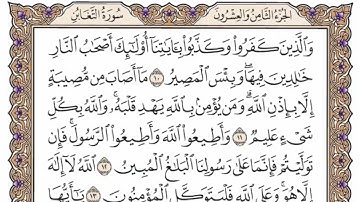 الجزء الثامن والعشرون
سورة التغابن
وَالَّذِينَ كَفَرُوا وَكَذَّبُوا بِآيَاتِنَا أُولَٰئِكَ أَصْحَابُ النَّارِ
خَالِدِينَ فِيهَا وَبِئْسَ الْمَصِيرُ ١٠ مَا أَصَابَ مِن مُّصِيبَةٍ
إِلَّا بِإِذْنِ اللَّهِ وَمَن يُؤْمِن بِاللَّهِ يَهْدِ قَلْبَهُ وَاللَّهُ بِكُلِّ
شَيْءٍ عَلِيمٌ ١١ وَأَطِيعُوا اللَّهَ وَأَطِيعُوا الرَّسُولَ فَإِن
تَوَلَّيْتُمْ فَإِنَّمَا عَلَىٰ رَسُولِنَا الْبَلَاغُ الْمُبِينُ ١٢ اللَّهُ لَا إِلَٰهَ
إِلَّا هُوَ وَعَلَى اللَّهِ فَلْيَتَوَكَّلِ الْمُؤْمِنُونَ ١٣ يَا أَيُّهَا